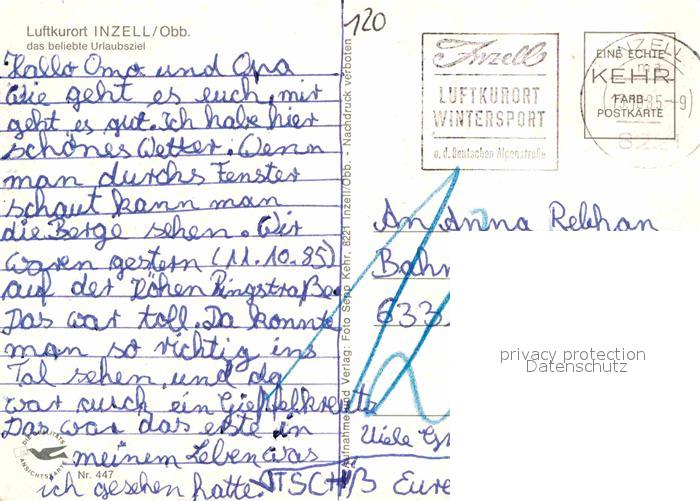 Luftkurort INZELL/Obb.
das beliebte Urlaubsziel
Hallo Oma und Opa
Wie geht es euch, mir
geht es gut. Ich habe hier
schönes Wetter. Wenn
man durchs Fenster
schaut kann man
die Berge sehen. Wir
waren gestern (11.10.85)
auf der Höhen Ringstraße.
Das war toll. Da konnte
man so richtig ins
Tal sehen, und da
war auch ein Giepfelkreutz
Das war das erste in
meinem Leben was
ich gesehen hatte.
DIE QUALITÄTS
ANSICHTSKARTE
Nr. 447
Aufnahme und Verlag: Foto Sepp Kehr, 8221 Inzell/Obb. - Nachdruck verboten
120
Inzell
LUFTKURORT
WINTERSPORT
a. d. Deutschen Alpenstraße
EINE ECHTE
KEHR
FARB-
POSTKARTE
INZELL
An Anna Rebhan
Bahn
633
privacy protection
Datenschutz
Viele Gr
TSCHÜß Eure